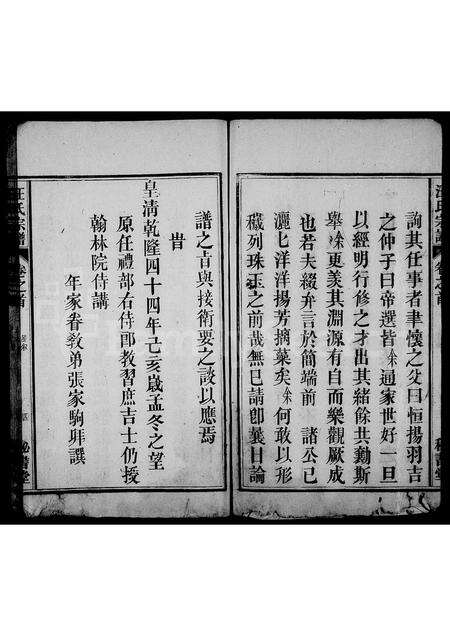 詢其任事者聿懷之丈曰恒揚羽吉
之仲子曰帝選皆余通家世好一旦
以經明行修之才出其緒餘共勷斯
舉余更羨其淵源有自而樂觀厥成
也若夫綴弁言於簡端前 諸公已
灑七洋洋揚芳摛藻矣余何敢以形
穢列珠玉之前哉無已請卽曩日論
譜之旨與接衛要之談以應焉
旹
皇清乾隆四十四年己亥歲孟冬之望
原任禮部右侍郎教習庶吉士仍授
翰林院侍講
年家眷教弟張家駒拜譔
汪氏宗譜
卷之首